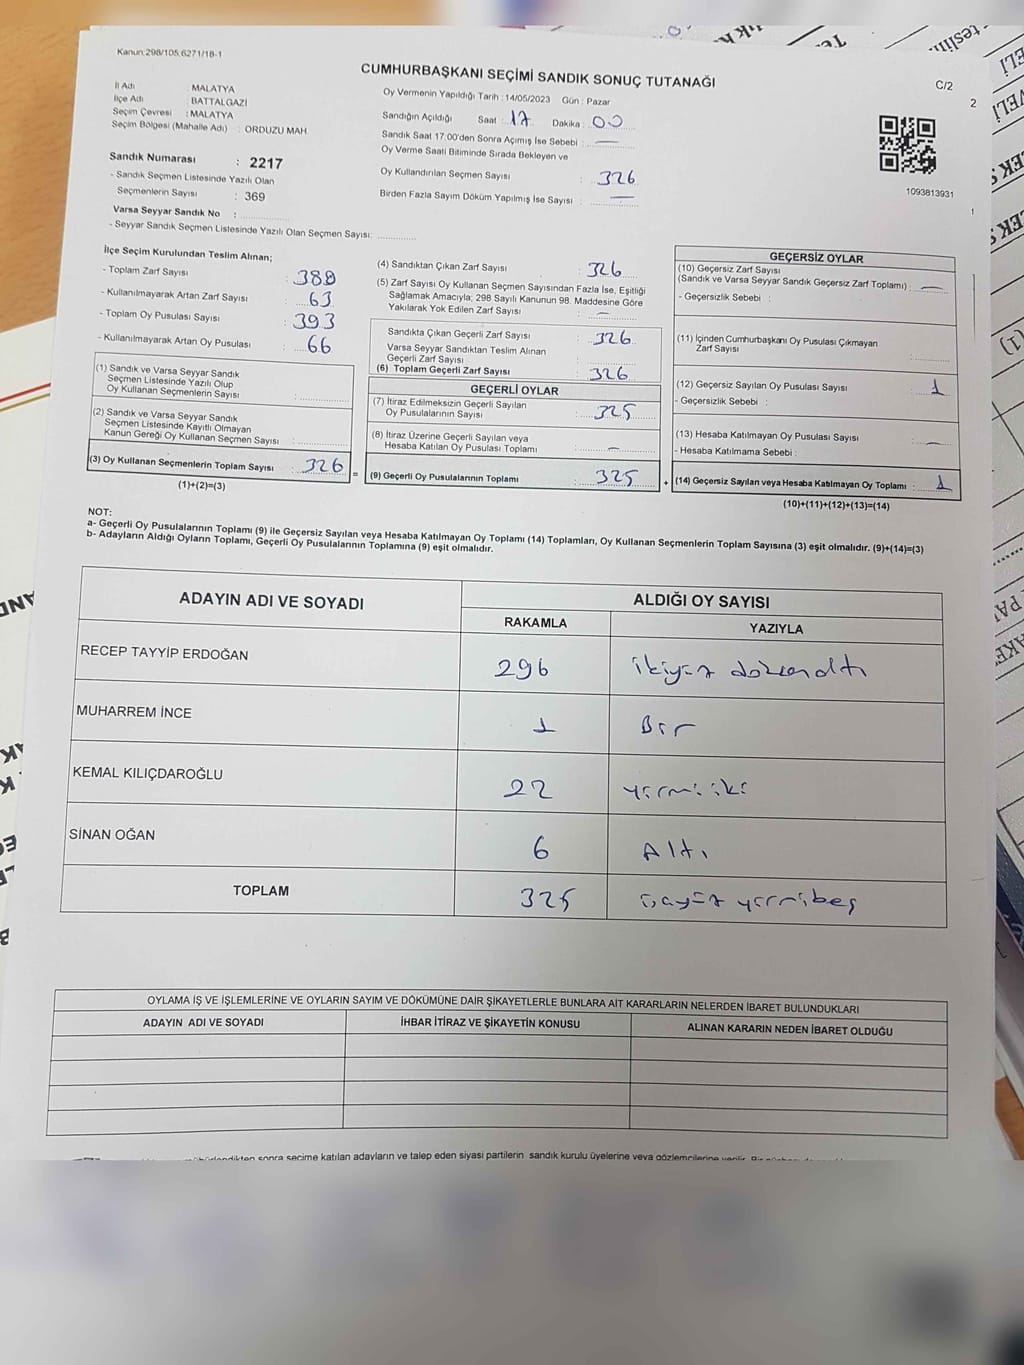 Kanun:298/105;6271/18-1
CUMHURBAŞKANI SEÇİMİ SANDIK SONUÇ TUTANAĞI
C/2
2
İl Adı : MALATYA
İlçe Adı : BATTALGAZİ
Seçim Çevresi : MALATYA
Seçim Bölgesi (Mahalle Adı) : ORDUZU MAH.
Sandık Numarası : 2217
- Sandık Seçmen Listesinde Yazılı Olan
Seçmenlerin Sayısı : 369
Varsa Seyyar Sandık No :
- Seyyar Sandık Seçmen Listesinde Yazılı Olan Seçmen Sayısı:
Oy Vermenin Yapıldığı Tarih : 14/05/2023 Gün : Pazar
Sandığın Açıldığı Saat : 17 Dakika : 00
Sandık Saat 17:00'den Sonra Açımış İse Sebebi : —
Oy Verme Saati Bitiminde Sırada Bekleyen ve
Oy Kullandırılan Seçmen Sayısı : 326
Birden Fazla Sayım Döküm Yapılmış İse Sayısı : —
1093813931
1
İlçe Seçim Kurulundan Teslim Alınan;
- Toplam Zarf Sayısı : 388
- Kullanılmayarak Artan Zarf Sayısı : 63
- Toplam Oy Pusulası Sayısı : 393
- Kullanılmayarak Artan Oy Pusulası : 66
(1) Sandık ve Varsa Seyyar Sandık
Seçmen Listesinde Yazılı Olup
Oy Kullanan Seçmenlerin Sayısı :
(2) Sandık ve Varsa Seyyar Sandık
Seçmen Listesinde Kayıtlı Olmayan
Kanun Gereği Oy Kullanan Seçmen Sayısı :
(3) Oy Kullanan Seçmenlerin Toplam Sayısı : 326
(1)+(2)=(3)
=
(4) Sandıktan Çıkan Zarf Sayısı : 326
(5) Zarf Sayısı Oy Kullanan Seçmen Sayısından Fazla İse, Eşitliği
Sağlamak Amacıyla; 298 Sayılı Kanunun 98. Maddesine Göre
Yakılarak Yok Edilen Zarf Sayısı : —
Sandıkta Çıkan Geçerli Zarf Sayısı : 326
Varsa Seyyar Sandıktan Teslim Alınan
Geçerli Zarf Sayısı :
(6) Toplam Geçerli Zarf Sayısı : 326
GEÇERLİ OYLAR
(7) İtiraz Edilmeksizin Geçerli Sayılan
Oy Pusulalarının Sayısı : 325
(8) İtiraz Üzerine Geçerli Sayılan veya
Hesaba Katılan Oy Pusulası Toplamı : —
(9) Geçerli Oy Pusulalarının Toplamı : 325
+
GEÇERSİZ OYLAR
(10) Geçersiz Zarf Sayısı
(Sandık ve Varsa Seyyar Sandık Geçersiz Zarf Toplamı) : —
- Geçersizlik Sebebi :
(11) İçinden Cumhurbaşkanı Oy Pusulası Çıkmayan
Zarf Sayısı :
(12) Geçersiz Sayılan Oy Pusulası Sayısı : 1
- Geçersizlik Sebebi :
(13) Hesaba Katılmayan Oy Pusulası Sayısı : —
- Hesaba Katılmama Sebebi :
(14) Geçersiz Sayılan veya Hesaba Katılmayan Oy Toplamı : 1
(10)+(11)+(12)+(13)=(14)
NOT:
a- Geçerli Oy Pusulalarının Toplamı (9) ile Geçersiz Sayılan veya Hesaba Katılmayan Oy Toplamı (14) Toplamları, Oy Kullanan Seçmenlerin Toplam Sayısına (3) eşit olmalıdır. (9)+(14)=(3)
b- Adayların Aldığı Oyların Toplamı, Geçerli Oy Pusulalarının Toplamına (9) eşit olmalıdır.
ADAYIN ADI VE SOYADI ALDIĞI OY SAYISI
RAKAMLA YAZIYLA
RECEP TAYYİP ERDOĞAN 296 ikiyüz doksanaltı
MUHARREM İNCE 1 Bir
KEMAL KILIÇDAROĞLU 22 yirmiiki
SİNAN OĞAN 6 Altı
TOPLAM 325 üçyüz yirmibeş
OYLAMA İŞ VE İŞLEMLERİNE VE OYLARIN SAYIM VE DÖKÜMÜNE DAİR ŞİKAYETLERLE BUNLARA AİT KARARLARIN NELERDEN İBARET BULUNDUKLARI
ADAYIN ADI VE SOYADI İHBAR İTİRAZ VE ŞİKAYETİN KONUSU ALINAN KARARIN NEDEN İBARET OLDUĞU
sonra seçime katılan adayların ve talep eden siyasi partilerin sandık kurulu üyelerine veya gözlemcilerine verilir.